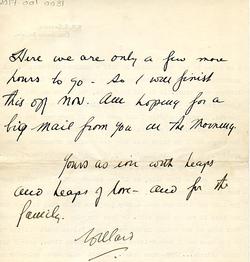 2017 001 0031
Here we are only a few more
hours to go - So I will finish
this off now. Am hoping for a
big mail from you in the morning.
Yours as ever with heaps
and heaps of love - and for the
family.